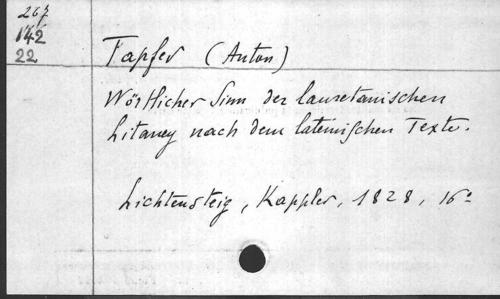 267
142
22
Tapfer (Anton)
Wörtlicher Sinn der lauretanischen
Litaney nach dem lateinischen Texte.
Lichtensteig, Kappler, 1828, 16°